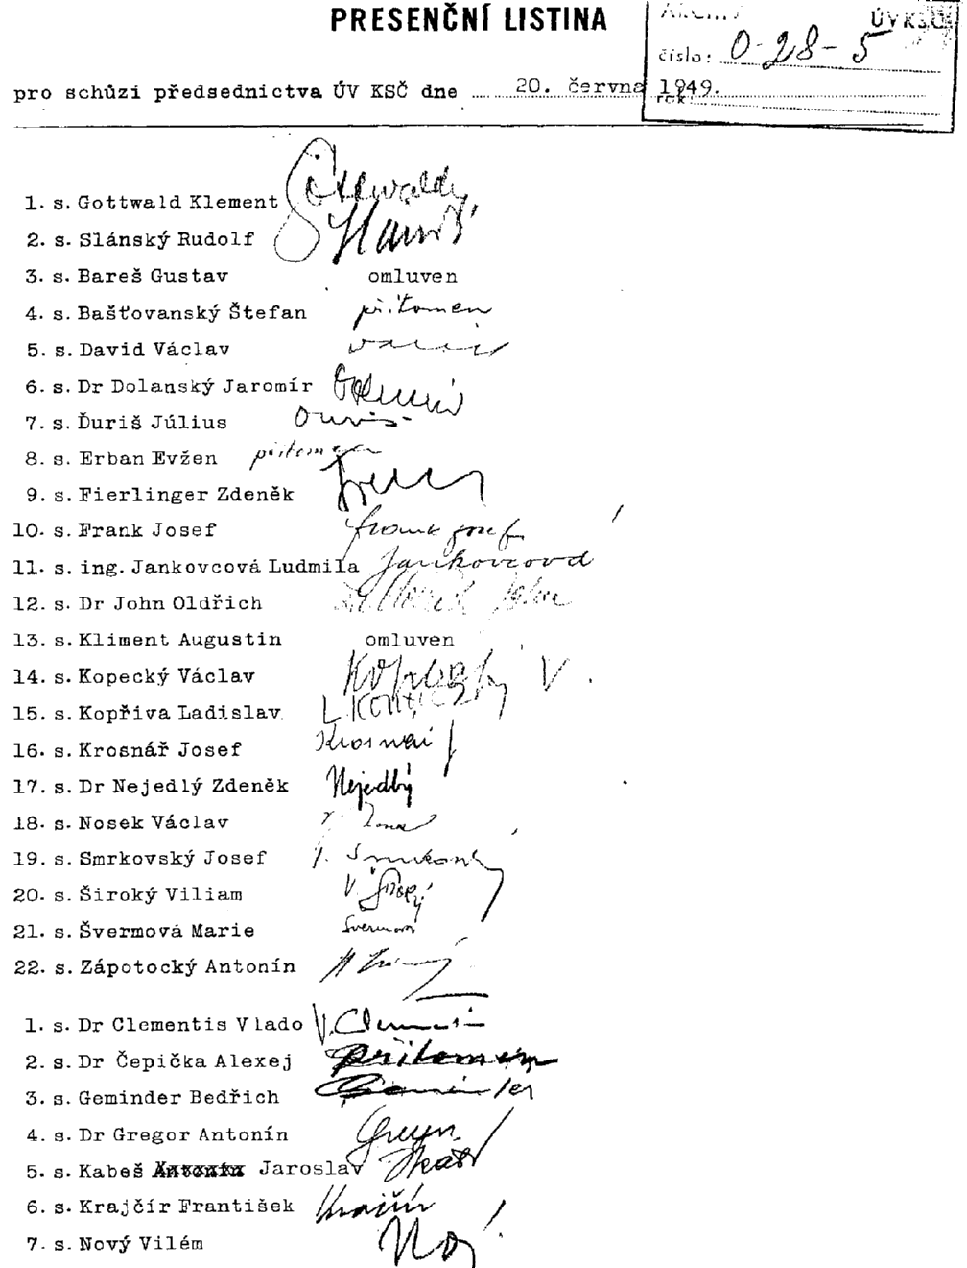 PRESENČNÍ LISTINA
ÚV KSČ
číslo: 0-28-5
pro schůzi předsednictva ÚV KSČ dne 20. června 1949.
rok:
1. s. Gottwald Klement Gottwald
2. s. Slánský Rudolf Slánský
3. s. Bareš Gustav omluven
4. s. Bašťovanský Štefan přítomen
5. s. David Václav David
6. s. Dr Dolanský Jaromír
7. s. Ďuriš Július Ďuriš
8. s. Erban Evžen přítomen
9. s. Fierlinger Zdeněk
10. s. Frank Josef Frank Josef
11. s. ing. Jankovcová Ludmila Jankovcová
12. s. Dr John Oldřich John
13. s. Kliment Augustin omluven
14. s. Kopecký Václav Kopecký V.
15. s. Kopřiva Ladislav L. Kopřiva
16. s. Krosnář Josef Krosnář J
17. s. Dr Nejedlý Zdeněk Nejedlý
18. s. Nosek Václav
19. s. Smrkovský Josef J. Smrkovský
20. s. Široký Viliam V. Široký
21. s. Švermová Marie Švermová
22. s. Zápotocký Antonín
1. s. Dr Clementis Vlado V. Clementis
2. s. Dr Čepička Alexej přítomen
3. s. Geminder Bedřich Geminder
4. s. Dr Gregor Antonín Gregor
5. s. Kabeš Antonín Jaroslav
6. s. Krajčír František Krajčír
7. s. Nový Vilém Nový